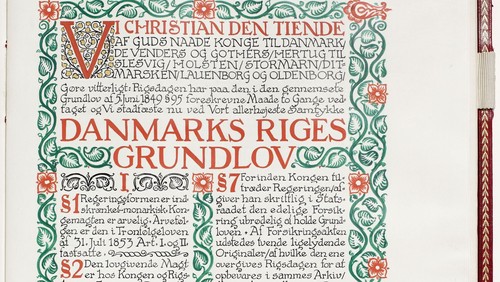 VI CHRISTIAN DEN TIENDE
AF GUDS NAADE KONGE TIL DANMARK
DE VENDERS OG GOTHERS/HERTUG TIL
SLESVIG/HOLSTEN/STORMARN/DIT
MARSKEN/LAUENBORG OG OLDENBORG/
Gøre vitterligt: Rigsdagen har paa den i den gennemsete
Grundlov af 5 Juni 1849 §95 foreskrevne Maade to Gange ved
taget og Vi stadfæste nu ved Vort allerhøjeste Samtykke
DANMARKS RIGES
GRUNDLOV
I
§1 Regeringsformen er ind
skrænket-monarkisk. Kon
gemagten er arvelig. Arvefølg
en er den i Tronfølgeloven
af 31. Juli 1853 Art. I. og II
fastsatte
§2 Den lovgivende Magt
er hos Kongen og Rigs
§7 Forinden Kongen til
træder Regeringen/af
giver han skriftlig i Stats
raadet den edelige Forsik
ring ubrødelig af holde Grund
loven. Af Forsikringsakten
udstedes tvende ligelydende
Originaler/af hvilke den ene
overgives Rigsdagen for at
opbevares i sammes Arkiv/